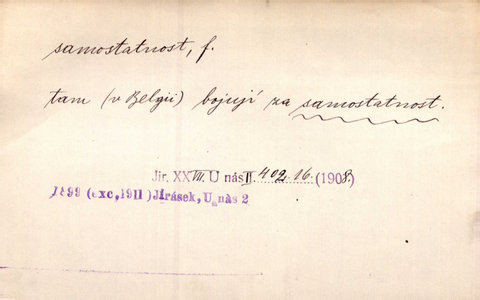 samostatnost, f.
tam (v Belgii) bojují za samostatnost.
Jir. XXVII. U nás II. 402, 16. (1908.)
1899 (exc, 1911) Jirásek, U nás 2